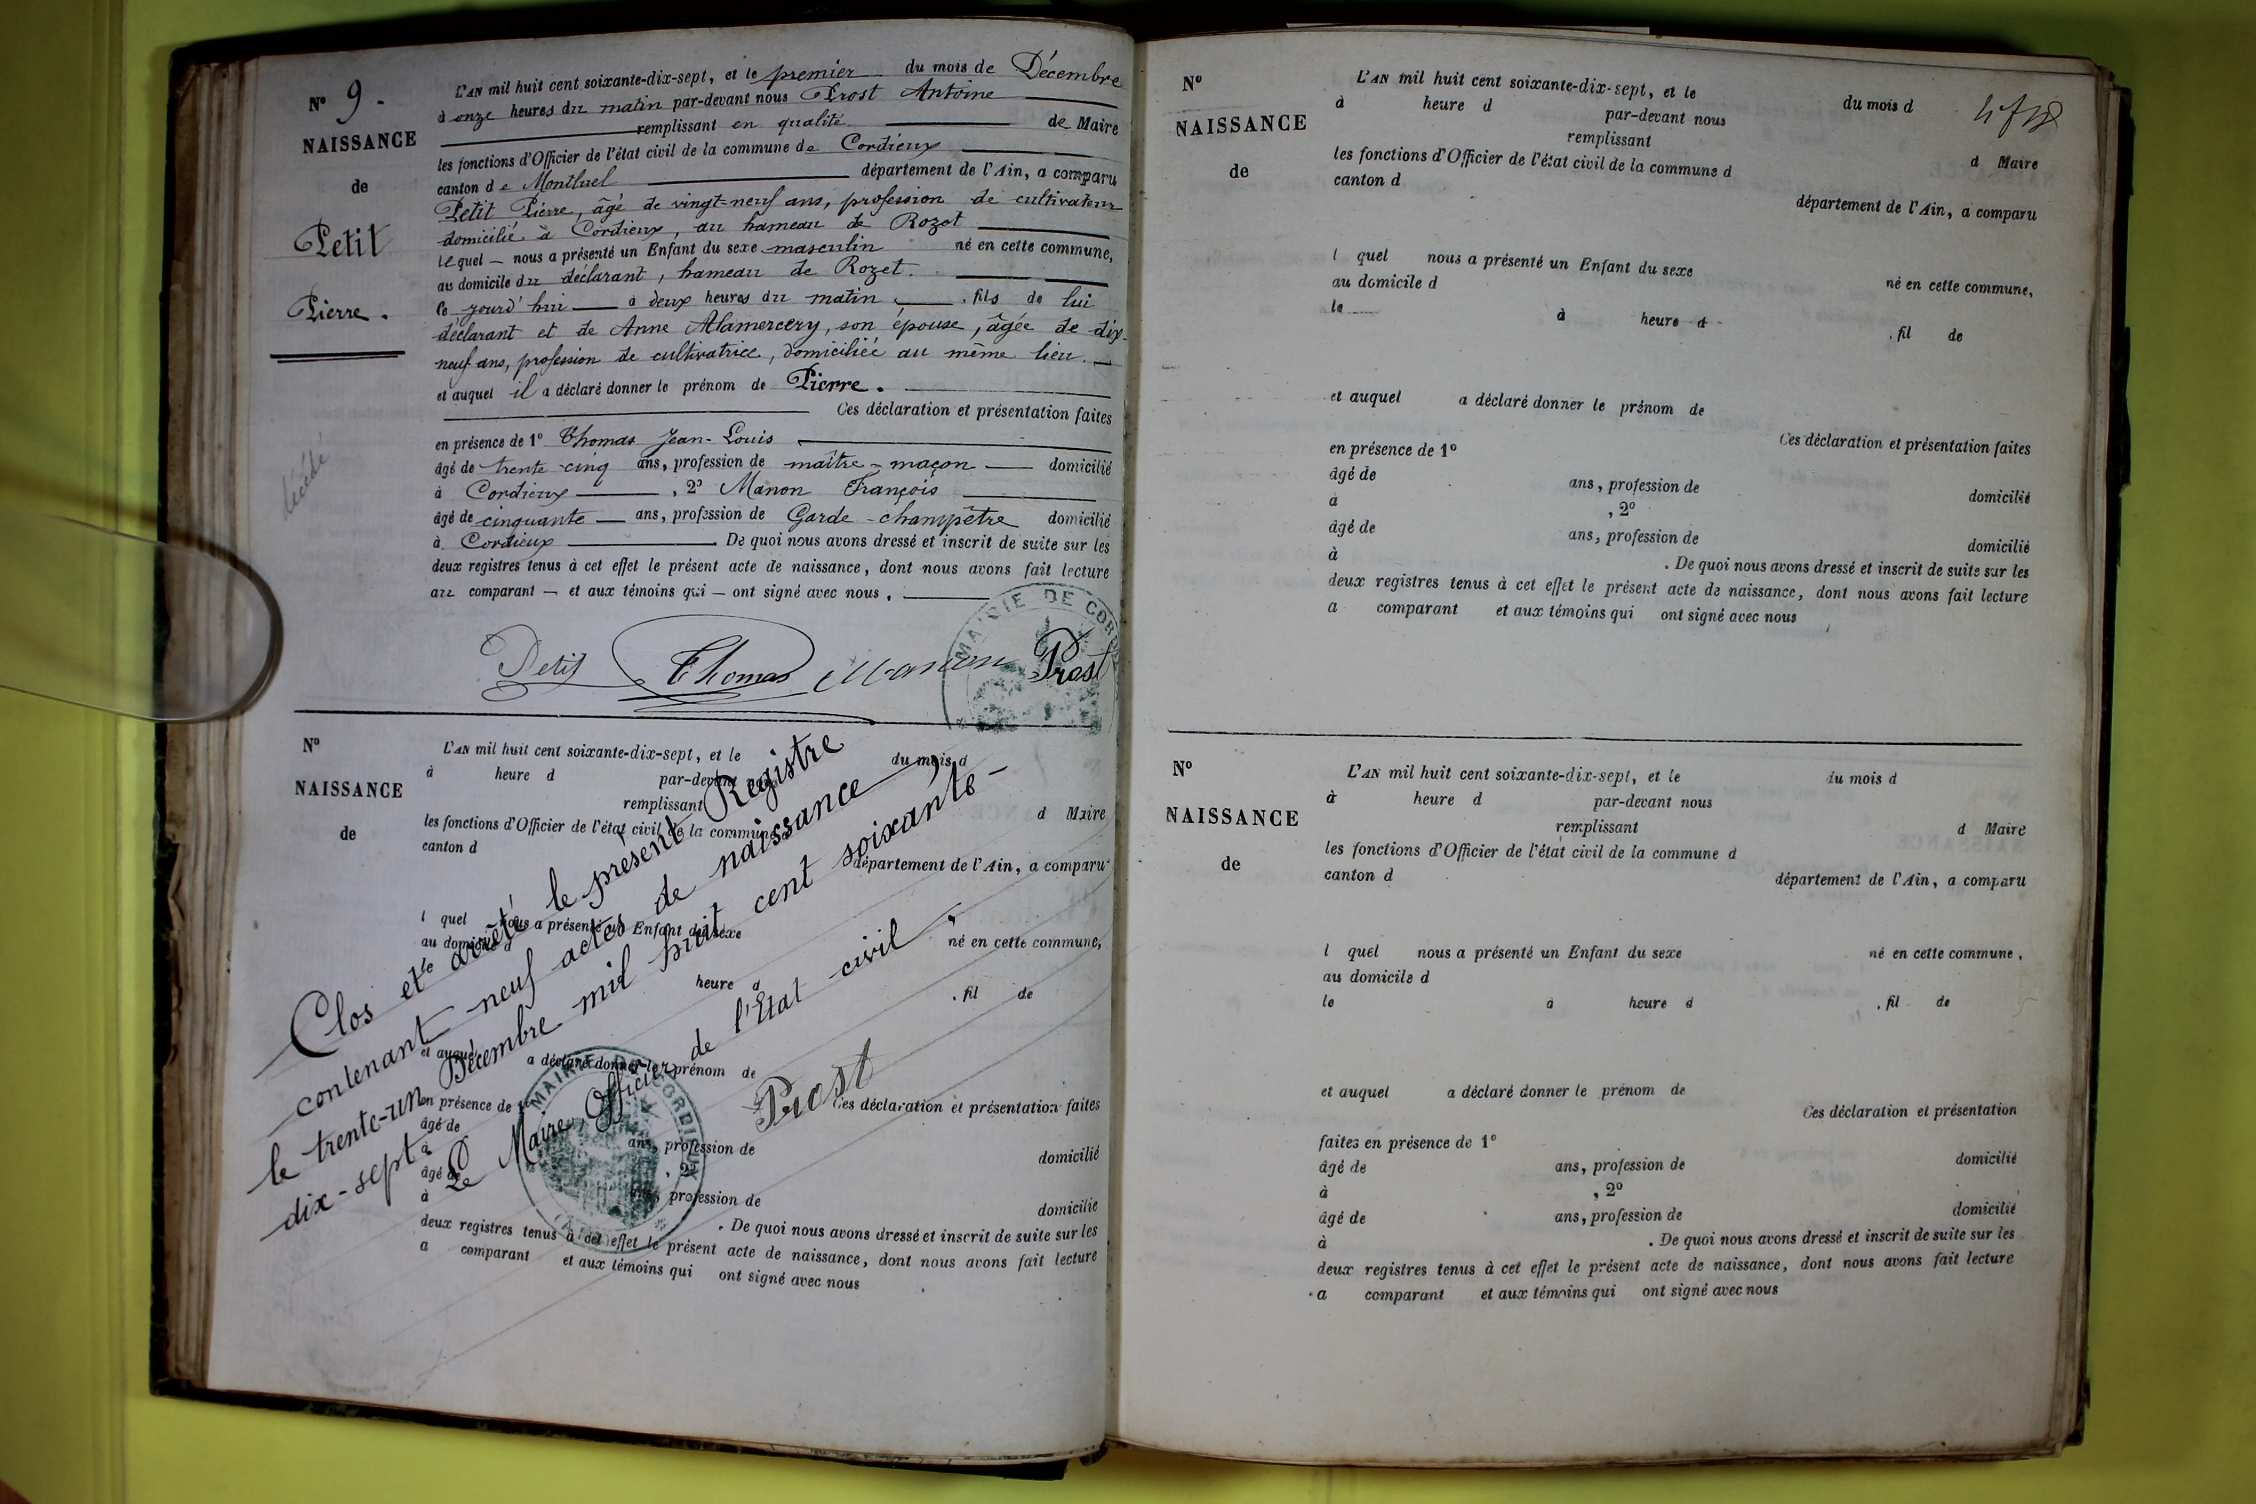 Nº 9.
NAISSANCE
de
Petit
Pierre.
décédé
L'AN mil huit cent soixante-dix-sept, et le premier du mois de Décembre
à onze heures du matin par-devant nous Prost Antoine
remplissant en qualité de Maire
les fonctions d'Officier de l'état civil de la commune de Cordieux
canton de Montluel département de l'Ain, a comparu
Petit Pierre, âgé de vingt-neuf ans, profession de cultivateur
domicilié à Cordieux, au hameau de Rozet
lequel — nous a présenté un Enfant du sexe masculin né en cette commune,
au domicile du déclarant, hameau de Rozet.
le jourd'hui à deux heures du matin, fils de lui
déclarant et de Anne Alamercery, son épouse, âgée de dix-
neuf ans, profession de cultivatrice, domiciliée au même lieu.
et auquel il a déclaré donner le prénom de Pierre.
Ces déclaration et présentation faites
en présence de 1º Thomas Jean-Louis
âgé de trente-cinq ans, profession de maître-maçon domicilié
à Cordieux, 2º Manon François
âgé de cinquante ans, profession de Garde-champêtre domicilié
à Cordieux. De quoi nous avons dressé et inscrit de suite sur les
deux registres tenus à cet effet le présent acte de naissance, dont nous avons fait lecture
au comparant — et aux témoins qui — ont signé avec nous.
Petit Thomas Manon Prost
MAIRIE DE CORDIEUX
Nº
NAISSANCE
de
L'AN mil huit cent soixante-dix-sept, et le du mois d
à heure d par-devant nous
remplissant d Maire
les fonctions d'Officier de l'état civil de la commune d
canton d
département de l'Ain, a comparu
l quel nous a présenté un Enfant du sexe
au domicile d né en cette commune,
heure d
. fil de
et auquel a déclaré donner le prénom de
Ces déclaration et présentation faites
en présence de 1º
âgé de ans, profession de domicilié
à , 2º
âgé de ans, profession de domicilié
à . De quoi nous avons dressé et inscrit de suite sur les
deux registres tenus à cet effet le présent acte de naissance, dont nous avons fait lecture
a comparant et aux témoins qui ont signé avec nous
Clos et arrêté le présent Registre
contenant neuf actes de naissance,
le trente-un Décembre mil huit cent soixante-
dix-sept.
Le Maire, Officier de l'État civil,
Prost
MAIRIE DE CORDIEUX
(AIN)
Nº
NAISSANCE
de
L'AN mil huit cent soixante-dix-sept, et le du mois d
à heure d par-devant nous
remplissant d Maire
les fonctions d'Officier de l'état civil de la commune d
canton d
département de l'Ain, a comparu
l quel nous a présenté un Enfant du sexe
au domicile d né en cette commune,
le à heure d
. fil de
et auquel a déclaré donner le prénom de
Ces déclaration et présentation faites
en présence de 1º
âgé de ans, profession de domicilié
à , 2º
âgé de ans, profession de domicilié
à . De quoi nous avons dressé et inscrit de suite sur les
deux registres tenus à cet effet le présent acte de naissance, dont nous avons fait lecture
a comparant et aux témoins qui ont signé avec nous
Nº
NAISSANCE
de
L'AN mil huit cent soixante-dix-sept, et le du mois d
à heure d par-devant nous
remplissant d Maire
les fonctions d'Officier de l'état civil de la commune d
canton d département de l'Ain, a comparu
l quel nous a présenté un Enfant du sexe né en cette commune,
au domicile d
le à heure d . fil de
et auquel a déclaré donner le prénom de
Ces déclaration et présentation
faites en présence de 1º
âgé de ans, profession de domicilié
à , 2º
âgé de ans, profession de domicilié
à . De quoi nous avons dressé et inscrit de suite sur les
deux registres tenus à cet effet le présent acte de naissance, dont nous avons fait lecture
a comparant et aux témoins qui ont signé avec nous